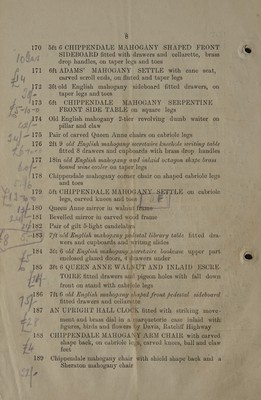 8
170 5ft 6 CHIPPENDALE MAHOGANY SHAPED FRONT
SIDEBOARD fitted with drawers and cellarette, brass
drop handles, on taper legs and toes
171 6ft ADAMS' MAHOGANY SETTLE with cane seat,
carved scroll ends, on fluted and taper legs
172 5ft old English mahogany sideboard fitted drawers, on
taper legs and toes
173 6ft CHIPPENDALE MAHOGANY SERPENTINE
FRONT SIDE TABLE on square legs
174 Old English mahogany 2-tier revolving dumb waiter on
pillar and claw
175 Pair of carved Queen Anne chairs on cabriole legs
176 2ft 9 old English mahogany secretaire kneehole writing table
fitted 8 drawers and cupboards with brass drop handles
177 18in old English mahogany and inlaid octagon shape brass
bound wine cooler on taper legs
178 Chippendale mahogany corner chair on shaped cabriole legs
and toes
179 5ft CHIPPENDALE MAHOGANY SETTLE on cabriole
legs, carved knees and toes
180 Queen Anne mirror in walnut frame
181 Bevelled mirror in carved wood frame
182 Pair of gilt 5-light candelabra
183 7ft old English mahogany pedestal library table fitted dra-
wers and cupboards and writing slides
184 3ft 6 old English mahogany secretaire bookcase upper part
enclosed glazed doors, 4 drawers under
185 3ft 6 QUEEN ANNE WALNUT AND INLAID ESCRE-
TOIRE fitted drawers and pigeon holes with fall down
front on stand with cabriole legs
186 7ft 6 old English mahogany shaped front pedestal sideboard
fitted drawers and cellarette
187 AN UPRIGHT HALL CLOCK fitted with striking move-
ment and brass dial in a marqueterie case inlaid with
figures, birds and flowers by Davis, Ratcliff Highway
188 CHIPPENDALE MAHOGANY ARM CHAIR with carved
shape back, on cabriole legs, carved knees, ball and claw
feet
189 Chippendale mahogany chair with shield shape back and a
Sheraton mahogany chair